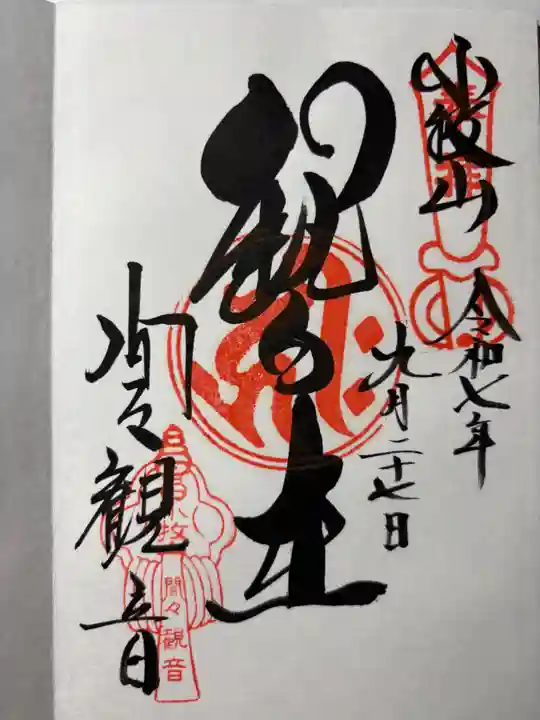 小牧山
令和七年
九月二十七日
観
間々観音
小牧
間々観音